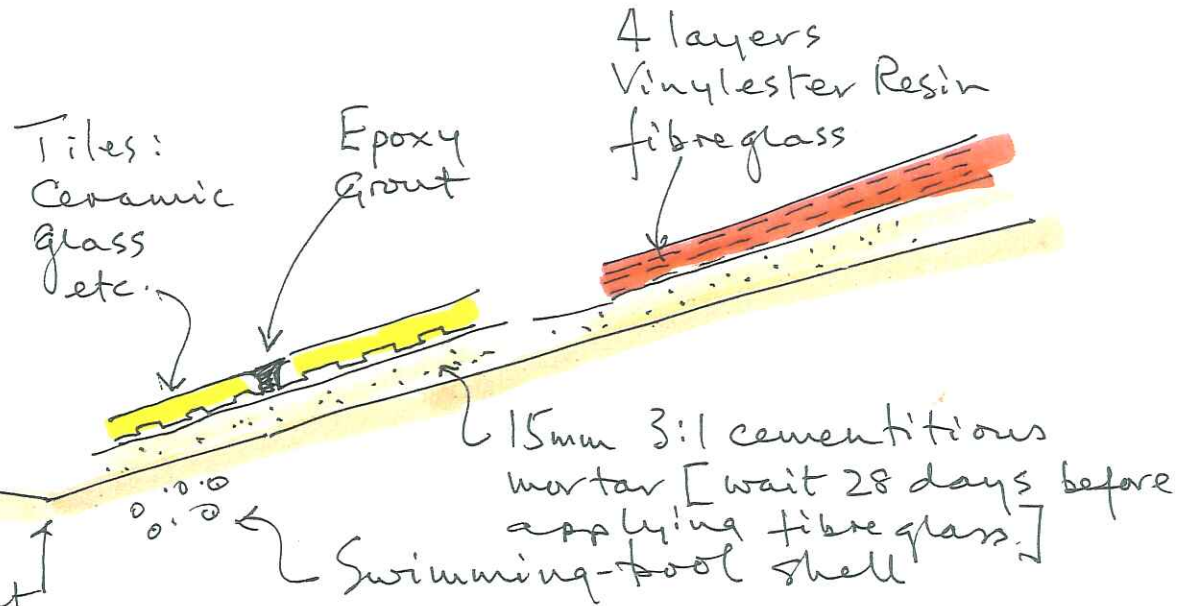 4 layers
Vinylester Resin
fibreglass
Tiles:
Ceramic
glass
etc.
Epoxy
Grout
15mm 3:1 cementitious
mortar [wait 28 days before
applying fibreglass.]
Swimming-pool shell